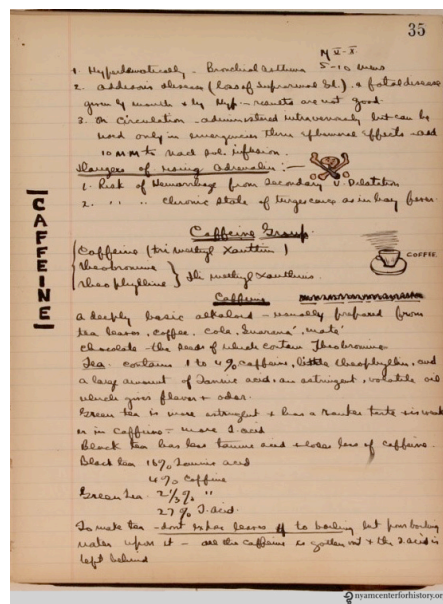 35
M V-X
1. Hypodermatically - Bronchial asthma 5-10 mins
2. Addisons disease (loss of Suprarenal Gl.) a fatal disease
given by mouth & by Hyp - results are not good.
3. On Circulation - administered intravenously but can be
used only in emergencies there ephemeral effects - add
10 mm to Nacl sol. infusion.
Dangers of using Adrenalin: -
1. Risk of Hemorrhage from Secondary V. Dilatation
2. " " Chronic State of turgescence as in hay fever.
CAFFEINE
Caffeine Group.
COFFEE
Caffeine (tri methyl Xanthin)
Theobromine
Theophylline } Di methyl Xanthins.
Caffeine
a deeply basic alkaloid - usually prepared from
tea leaves, coffee, cola, Guarana, maté
Chocolate - the seeds of which contain Theobromine
Tea. contains 1 to 4% caffeine, little theophyllin, and
a large amount of Tannic acid, an astringent, volatile oil
which gives flavor & odor.
Green tea is more astringent & has a ranker taste & is weak
er in caffeine - more T. acid
Black tea has less tannic acid & loses less of caffeine.
Black tea 16% Tannic acid
4% Caffeine
Green tea 2 1/3% "
27% T. acid.
To make tea - dont expose leaves to boiling but pour boiling
water upon it - all the caffeine is gotten out & the T. acid is
left behind
nyamcenterforhistory.or